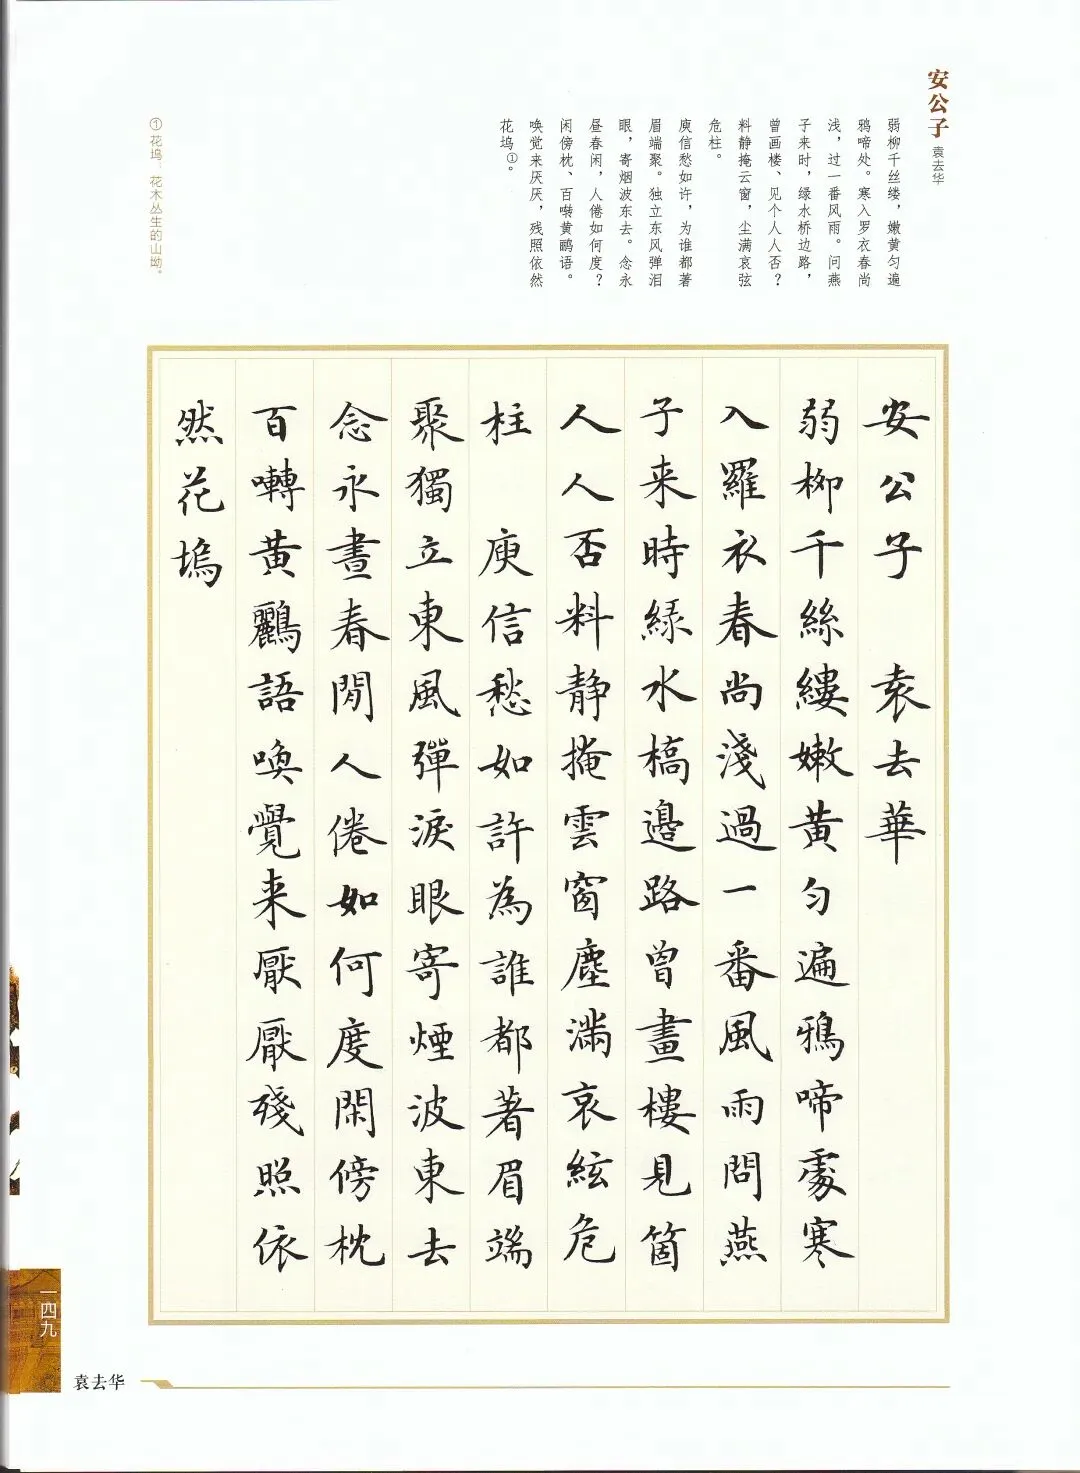 安公子 袁去华
弱柳千丝缕，嫩黄匀遍
鸦啼处。寒入罗衣春尚
浅，过一番风雨。问燕
子来时，绿水桥边路，
曾画楼、见个人人否？
料静掩云窗，尘满哀弦
危柱。
庾信愁如许，为谁都著
眉端聚。独立东风弹泪
眼，寄烟波东去。念永
昼春闲，人倦如何度？
闲傍枕、百啭黄鹂语。
唤觉来厌厌，残照依然
花坞①。
①花坞：花木丛生的山坳。
安公子 袁去華
弱柳千絲縷嫩黃勻遍鴉啼處寒
入羅衣春尚淺過一番風雨問燕
子来時緑水橋邊路曾畫樓見箇
人人否料静掩雲窗塵滿哀絃危
柱 庾信愁如許為誰都著眉端
聚獨立東風彈淚眼寄煙波東去
念永晝春閒人倦如何度閑傍枕
百囀黃鸝語喚覺来厭厭殘照依
然花塢
一四九
袁去华